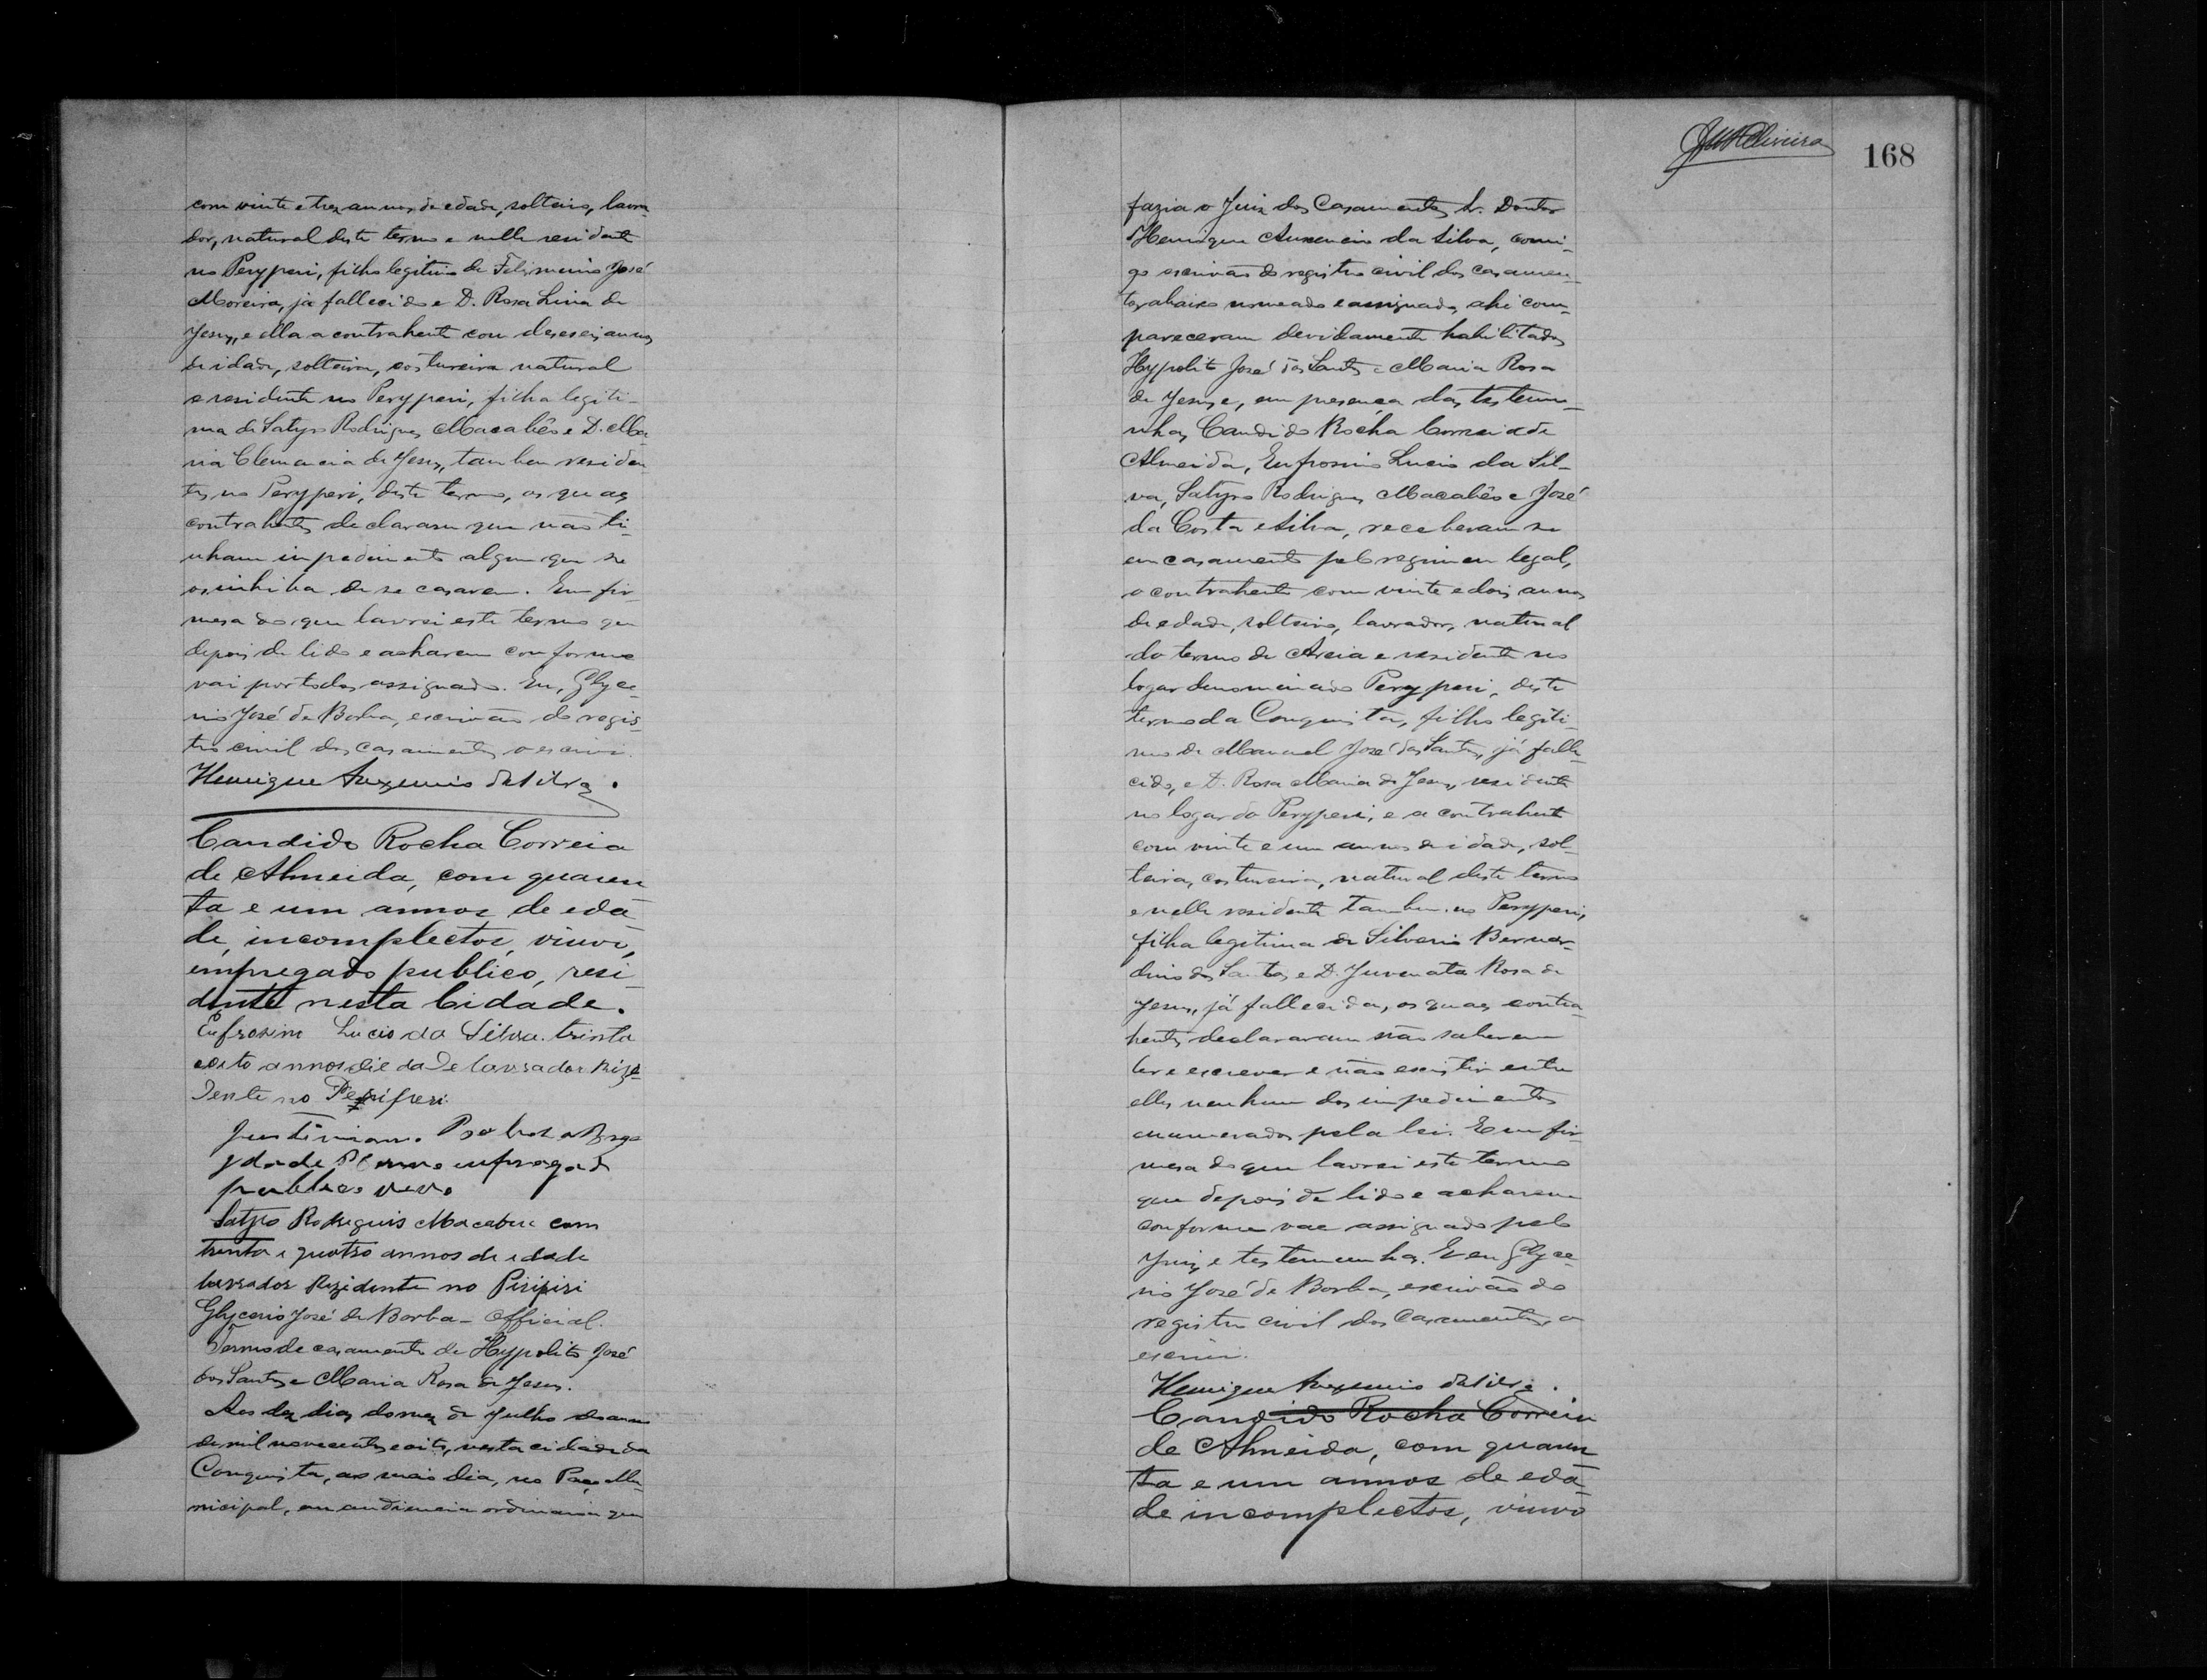 com vinte e trez annos de edade, solteiro, lavra-
dor, natural deste termo e nelle residente
no Peryperi, filho legitimo de Felismino José
Moreira, já fallecido e D. Rosa Lina de
Jesus, e ella a contrahente com deseseis annos
de idade, solteira, costureira natural
e residente no Peryperi, filha legiti-
ma de Satyro Rodrigues Macabêo e D. Ma-
ria Clemencia de Jesus, tambem residen
tes no Peryperi, deste termo, os quaes
contrahentes declaram que não ti-
nham impedimento algum que se
os inhiba de se casarem. Em fir-
mesa do que lavrei este termo que
depois de lido e acharem conforme
vai por todos assignado. Eu, Glyce-
rio José de Borba, escrivão do regis-
tro civil dos casamentos o escrivi.
Henrique Auxencio da Silva.
Candido Rocha Correia
de Almeida, com quaren
ta e um annos de eda
de, incomplectos, viuvo,
empregado publico, resi-
dente nesta Cidade.
Eufrosino Lucio da Silva. trinta
eoito annos die da De lavrador Rize
Dente no Periperi
Justiniano
ydade empregad
publico vivo
Satyro Rodriguis Macabeu com
trinta e quatro annos de idade
lavrador Rezidente no Piripiri
Glycerio José de Borba - Official.
Termo de casamento de Hypolito José
dos Santos e Maria Rosa de Jesus.
Aos dez dias do mez de Julho do anno
de mil novecentos e oito, nesta cidade da
Conquista, ao meio dia, no Paço Mu-
nicipal, em audiencia ordinaria que
JMOliveira
168
fazia o Juiz dos Casamentos Sr. Doutor
Henrique Auxencio da Silva, comi-
go escrivão do registro civil dos casamen-
tos abaixo nomeado e assignado, ahi com-
pareceram devidamente habilitados
Hypolito José dos Santos e Maria Rosa
de Jesus e, em presença das testemu-
nhas Candido Rocha Correia de
Almeida, Eufrosino Lucio da Sil-
va, Satyro Rodrigues Macabêo e José
da Costa e Silva, receberam se
em casamento pelo regimen legal,
o contrahente com vinte e dois annos
de edade, solteiro, lavrador, natural
do termo de Areia e residente no
logar denominado Peryperi, deste
termo da Conquista, filho legiti-
mo de Manuel José dos Santos, já falle-
cido, e D. Rosa Maria de Jesus, residente
no logar do Peryperi, e a contrahente
com vinte e um annos de idade, sol-
teira, costureira, natural deste termo
e nelle residente tambem no Peryperi,
filha legitima de Silverio Bernar-
dino dos Santos e D. Juvenata Rosa de
Jesus, já fallecida, os quaes contra-
hentes declararam não saberem
ler e escrever e não existir entre
elles nenhum dos impedimentos
enumerados pela lei. E em fir-
mesa do que lavrei este termo
que depois de lido e acharem
conforme vae assignado pelo
Juiz e testemunhas. E eu Glyce-
rio José de Borba, escrivão do
registro civil dos casamentos, o
escrivi.
Henrique Auxencio da Silva.
Candido Rocha Correia
de Almeida, com quaren
ta e um annos de eda
de incomplectos, viuvo